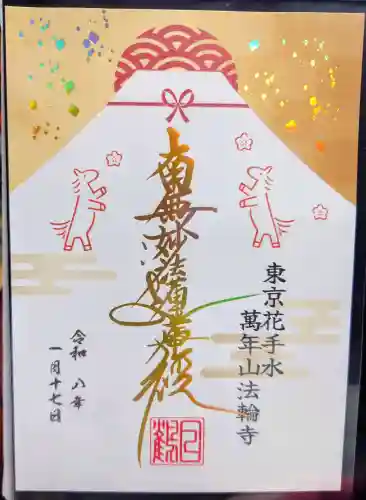 東京花手水
萬年山法輪寺
南無妙法蓮華経
令和 八年
一月十七日